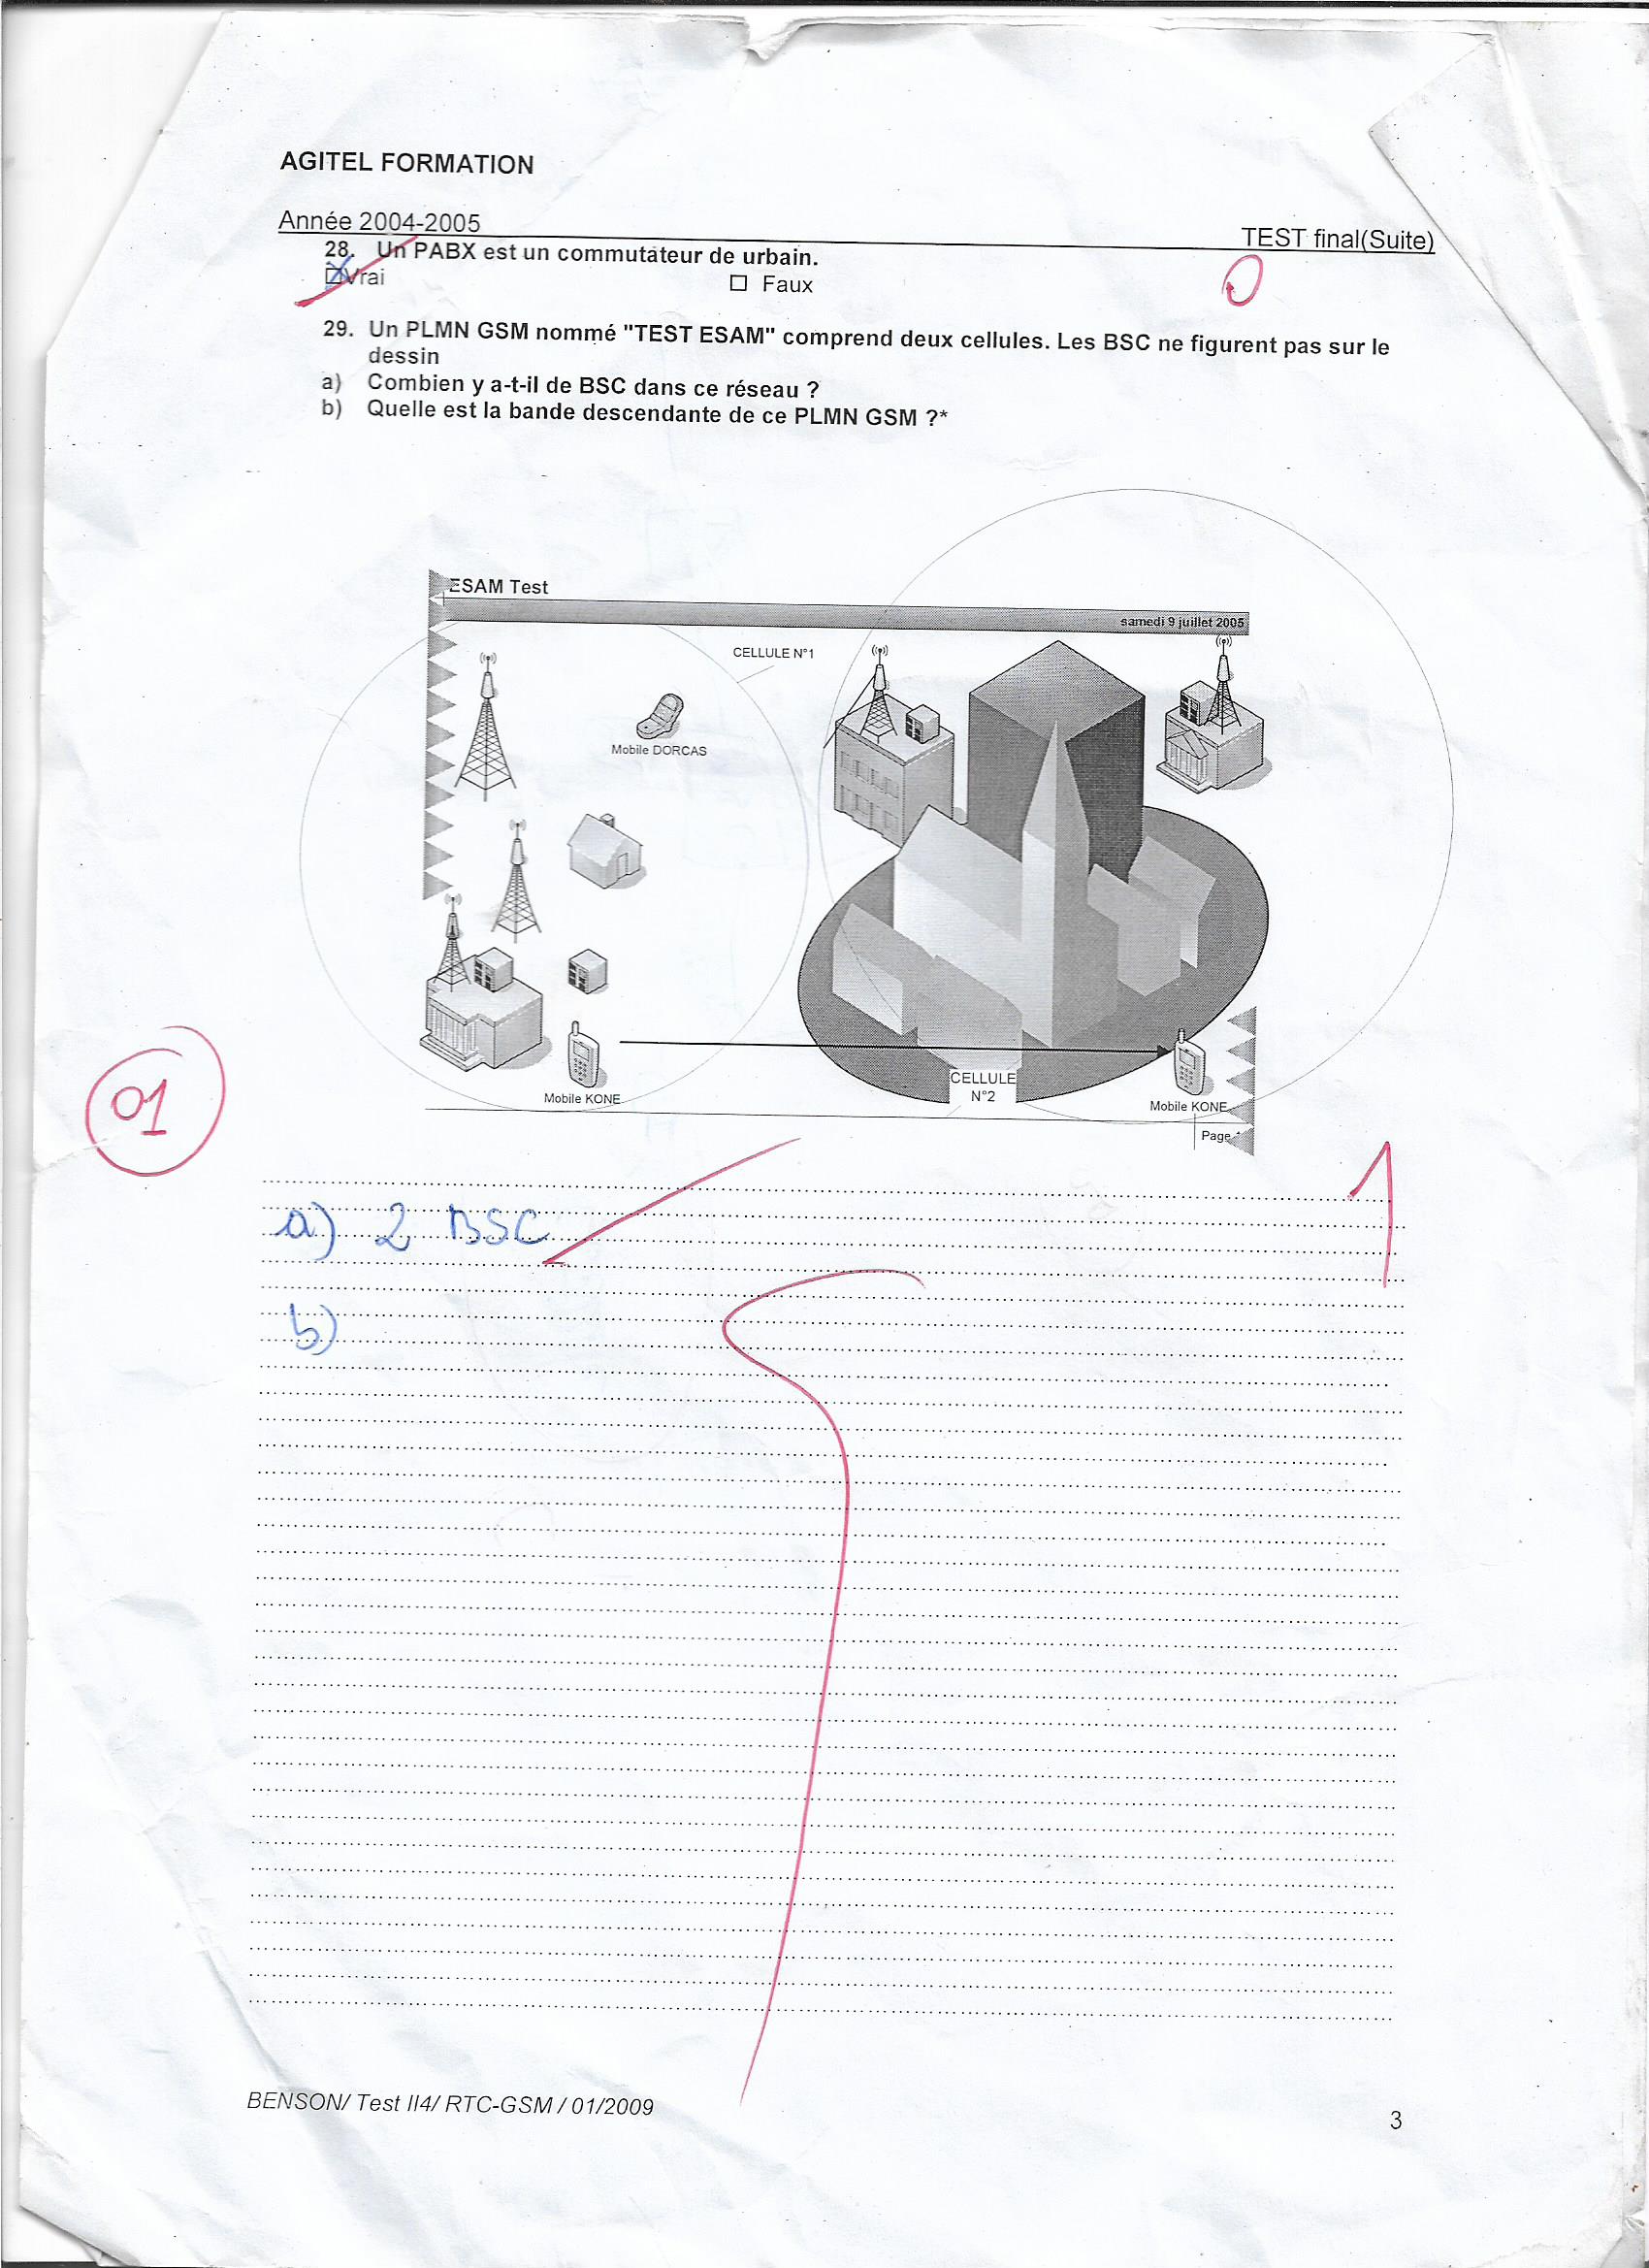 AGITEL FORMATION
Année 2004-2005
TEST final(Suite)
28. Un PABX est un commutateur de urbain.
Vrai
Faux
0
29. Un PLMN GSM nommé "TEST ESAM" comprend deux cellules. Les BSC ne figurent pas sur le
dessin
a) Combien y a-t-il de BSC dans ce réseau ?
b) Quelle est la bande descendante de ce PLMN GSM ?*
ESAM Test
samedi 9 juillet 2005
CELLULE N°1
Mobile DORCAS
CELLULE
N°2
Mobile KONE
Mobile KONE
Page
01
1
a) 2 BSC
b)
BENSON/ Test II4/ RTC-GSM / 01/2009
3